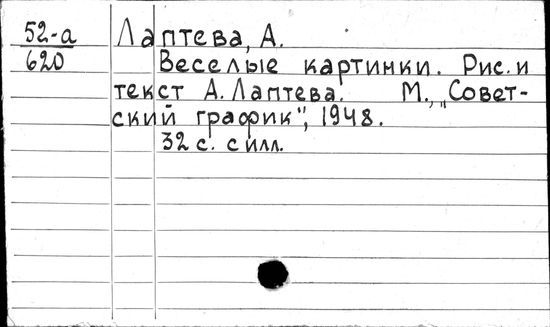 52-а
620
Лаптева, А.
Веселые картинки. Рис. и
текст А. Лаптева. М., „Совет-
ский график", 1948.
32 с. с илл.